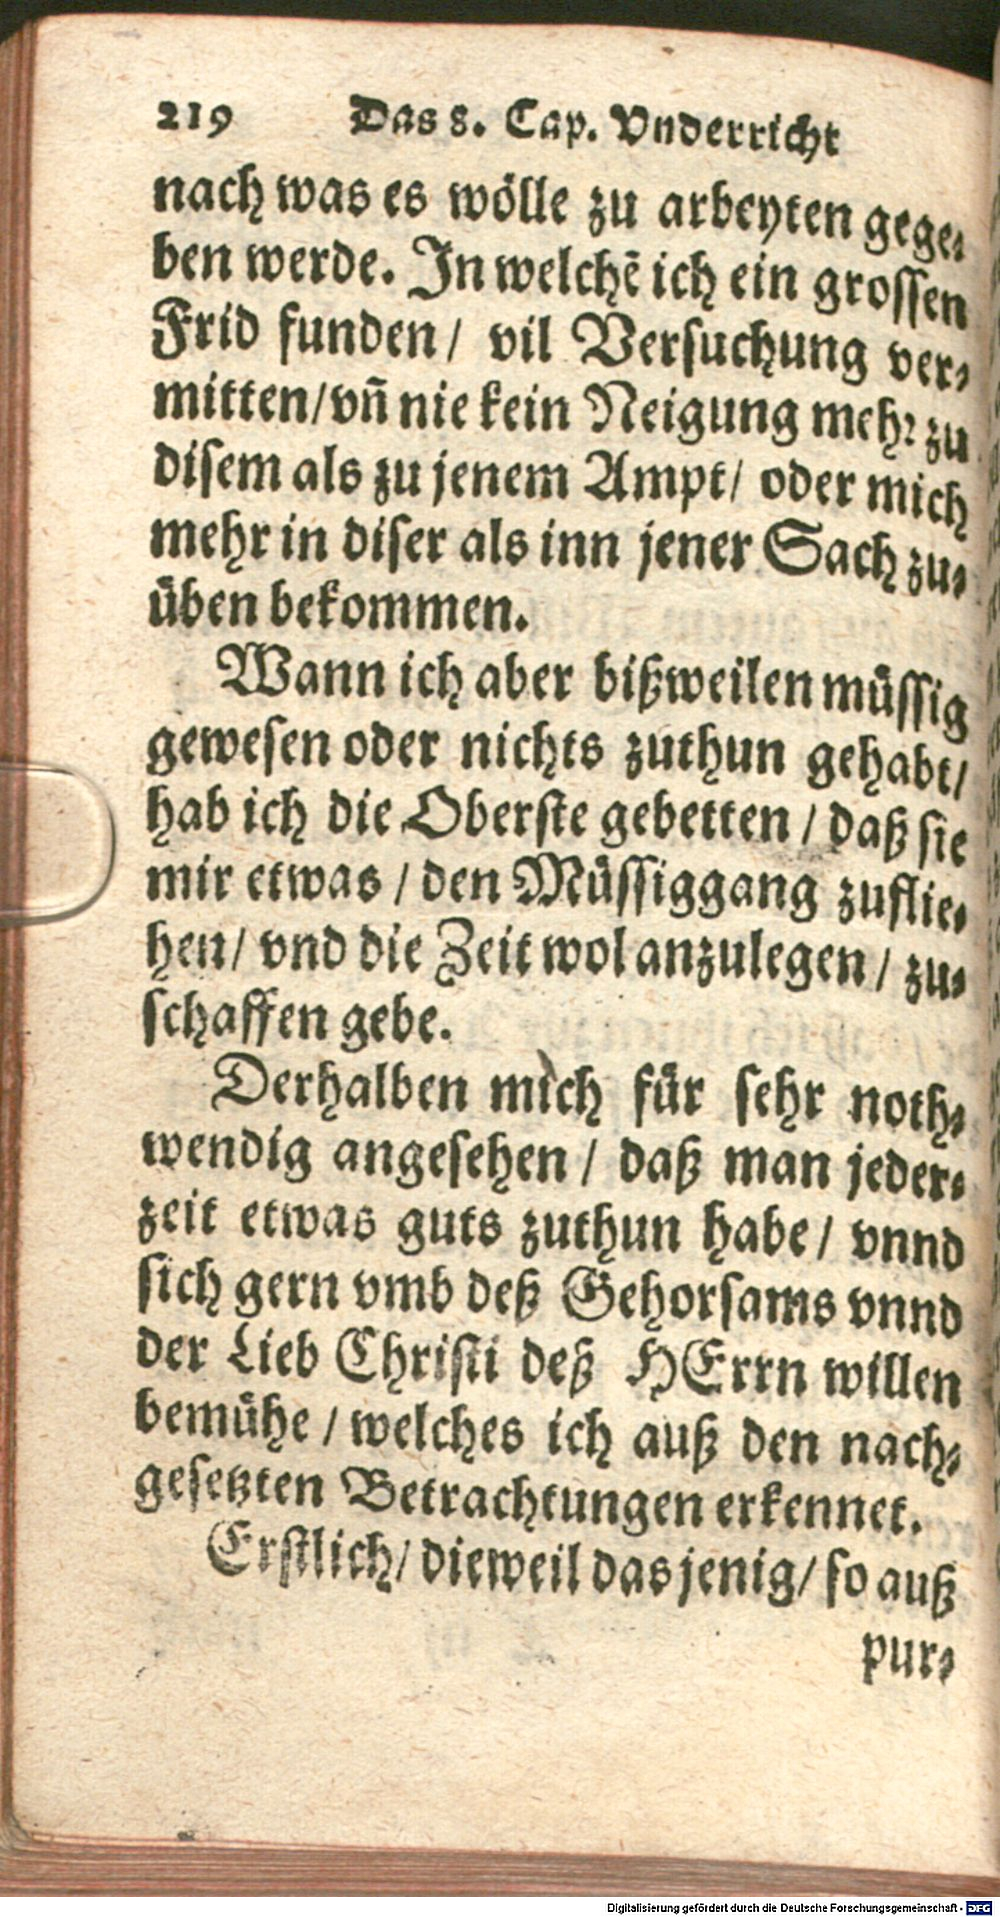 219 Das 8. Cap. Vnderricht
nach was es wölle zu arbeyten gege-
ben werde. In welchē ich ein grossen
Frid funden / vil Versuchung ver-
mitten / vñ nie kein Neigung mehr zu
disem als zu jenem Ampt / oder mich
mehr in diser als inn jener Sach zu-
üben bekommen.
Wann ich aber bißweilen müssig
gewesen oder nichts zuthun gehabt /
hab ich die Oberste gebetten / daß sie
mir etwas / den Müssiggang zuflie-
hen / vnd die Zeit wol anzulegen / zu-
schaffen gebe.
Derhalben mich für sehr noth-
wendig angesehen / daß man jeder-
zeit etwas guts zuthun habe / vnnd
sich gern vmb deß Gehorsams vnnd
der Lieb Christi deß HErrn willen
bemühe / welches ich auß den nach-
gesetzten Betrachtungen erkennet.
Erstlich / dieweil das jenig / so auß
pur-
Digitalisierung gefördert durch die Deutsche Forschungsgemeinschaft - DFG